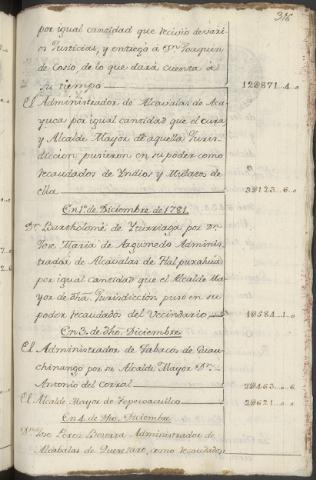 316
por igual cantidad que recivio de vari-
os Justicias, y entregó a Dn. Joaquin
de Cosio, de lo que dará cuenta á
su tiempo 128871..4..
El Administrador de Alcavalas de Aca-
yuca por igual cantidad que el cura
y Alcalde Mayor de aquella Juris-
diccion pusieron en su poder como
recaudados de Yndios y Mulatos de
ella 3123..6..
En 1o. de Diciembre de 1781.
Dn. Bartholomé de Yturriaga por Dn.
Jose Maria de Argumedo Adminis-
trador de Alcavalas de Tlalpuxahua
por igual cantidad que el Alcalde Ma-
yor de dha. Jurisdiccion puso en su
poder recaudado del Vecindario 584..1..
En 3. de dho. Diciembre
El Administrador de Tabacos de Guau-
chinango por su Alcalde Mayor Dn.
Antonio del Corral 463..
El Alcalde Mayor de 621..
En 4. de dho. Diciembre
Jose Perez Becerra Administrador de
Alcabalas de Queretaro, como recaudados